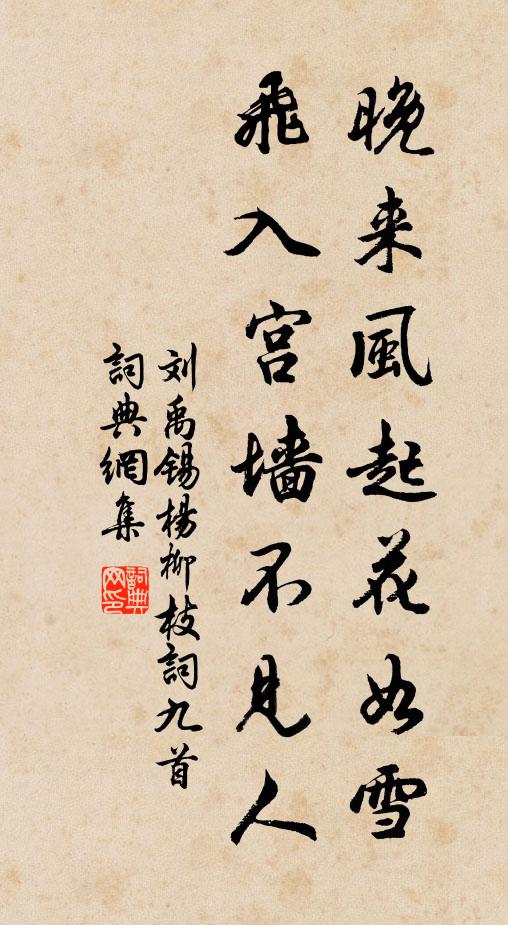 晚来風起花如雪
飛入宫墙不見人
刘禹锡楊柳枝詞九首
詞典網集
詞典网印